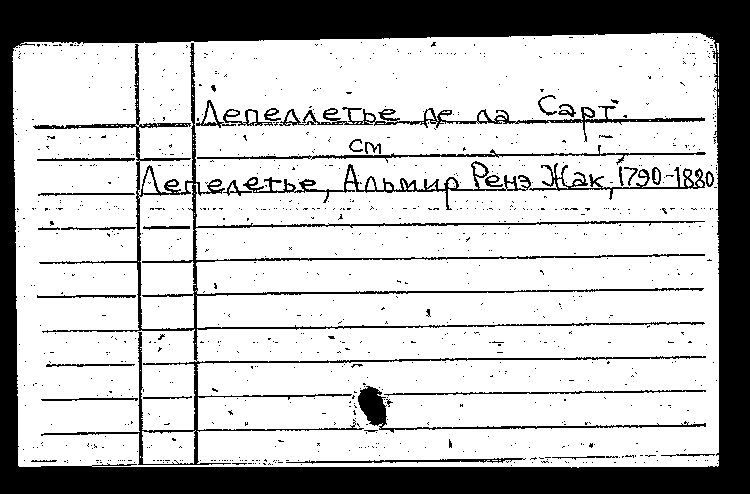 Лепеллетье де ла Сарт.
см
Лепелетье, Альмир Ренэ Жак, 1790-1880